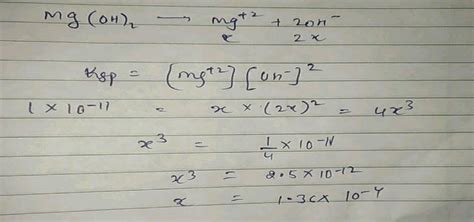 Mg(OH)₂ ⟶ Mg⁺² + 2OH⁻
x 2x
Ksp = [Mg⁺²] [OH⁻]²
1 × 10⁻¹¹ = x × (2x)² = 4x³
x³ = 1/4 × 10⁻¹¹
x³ = 2.5 × 10⁻¹²
x = 1.36 × 10⁻⁴